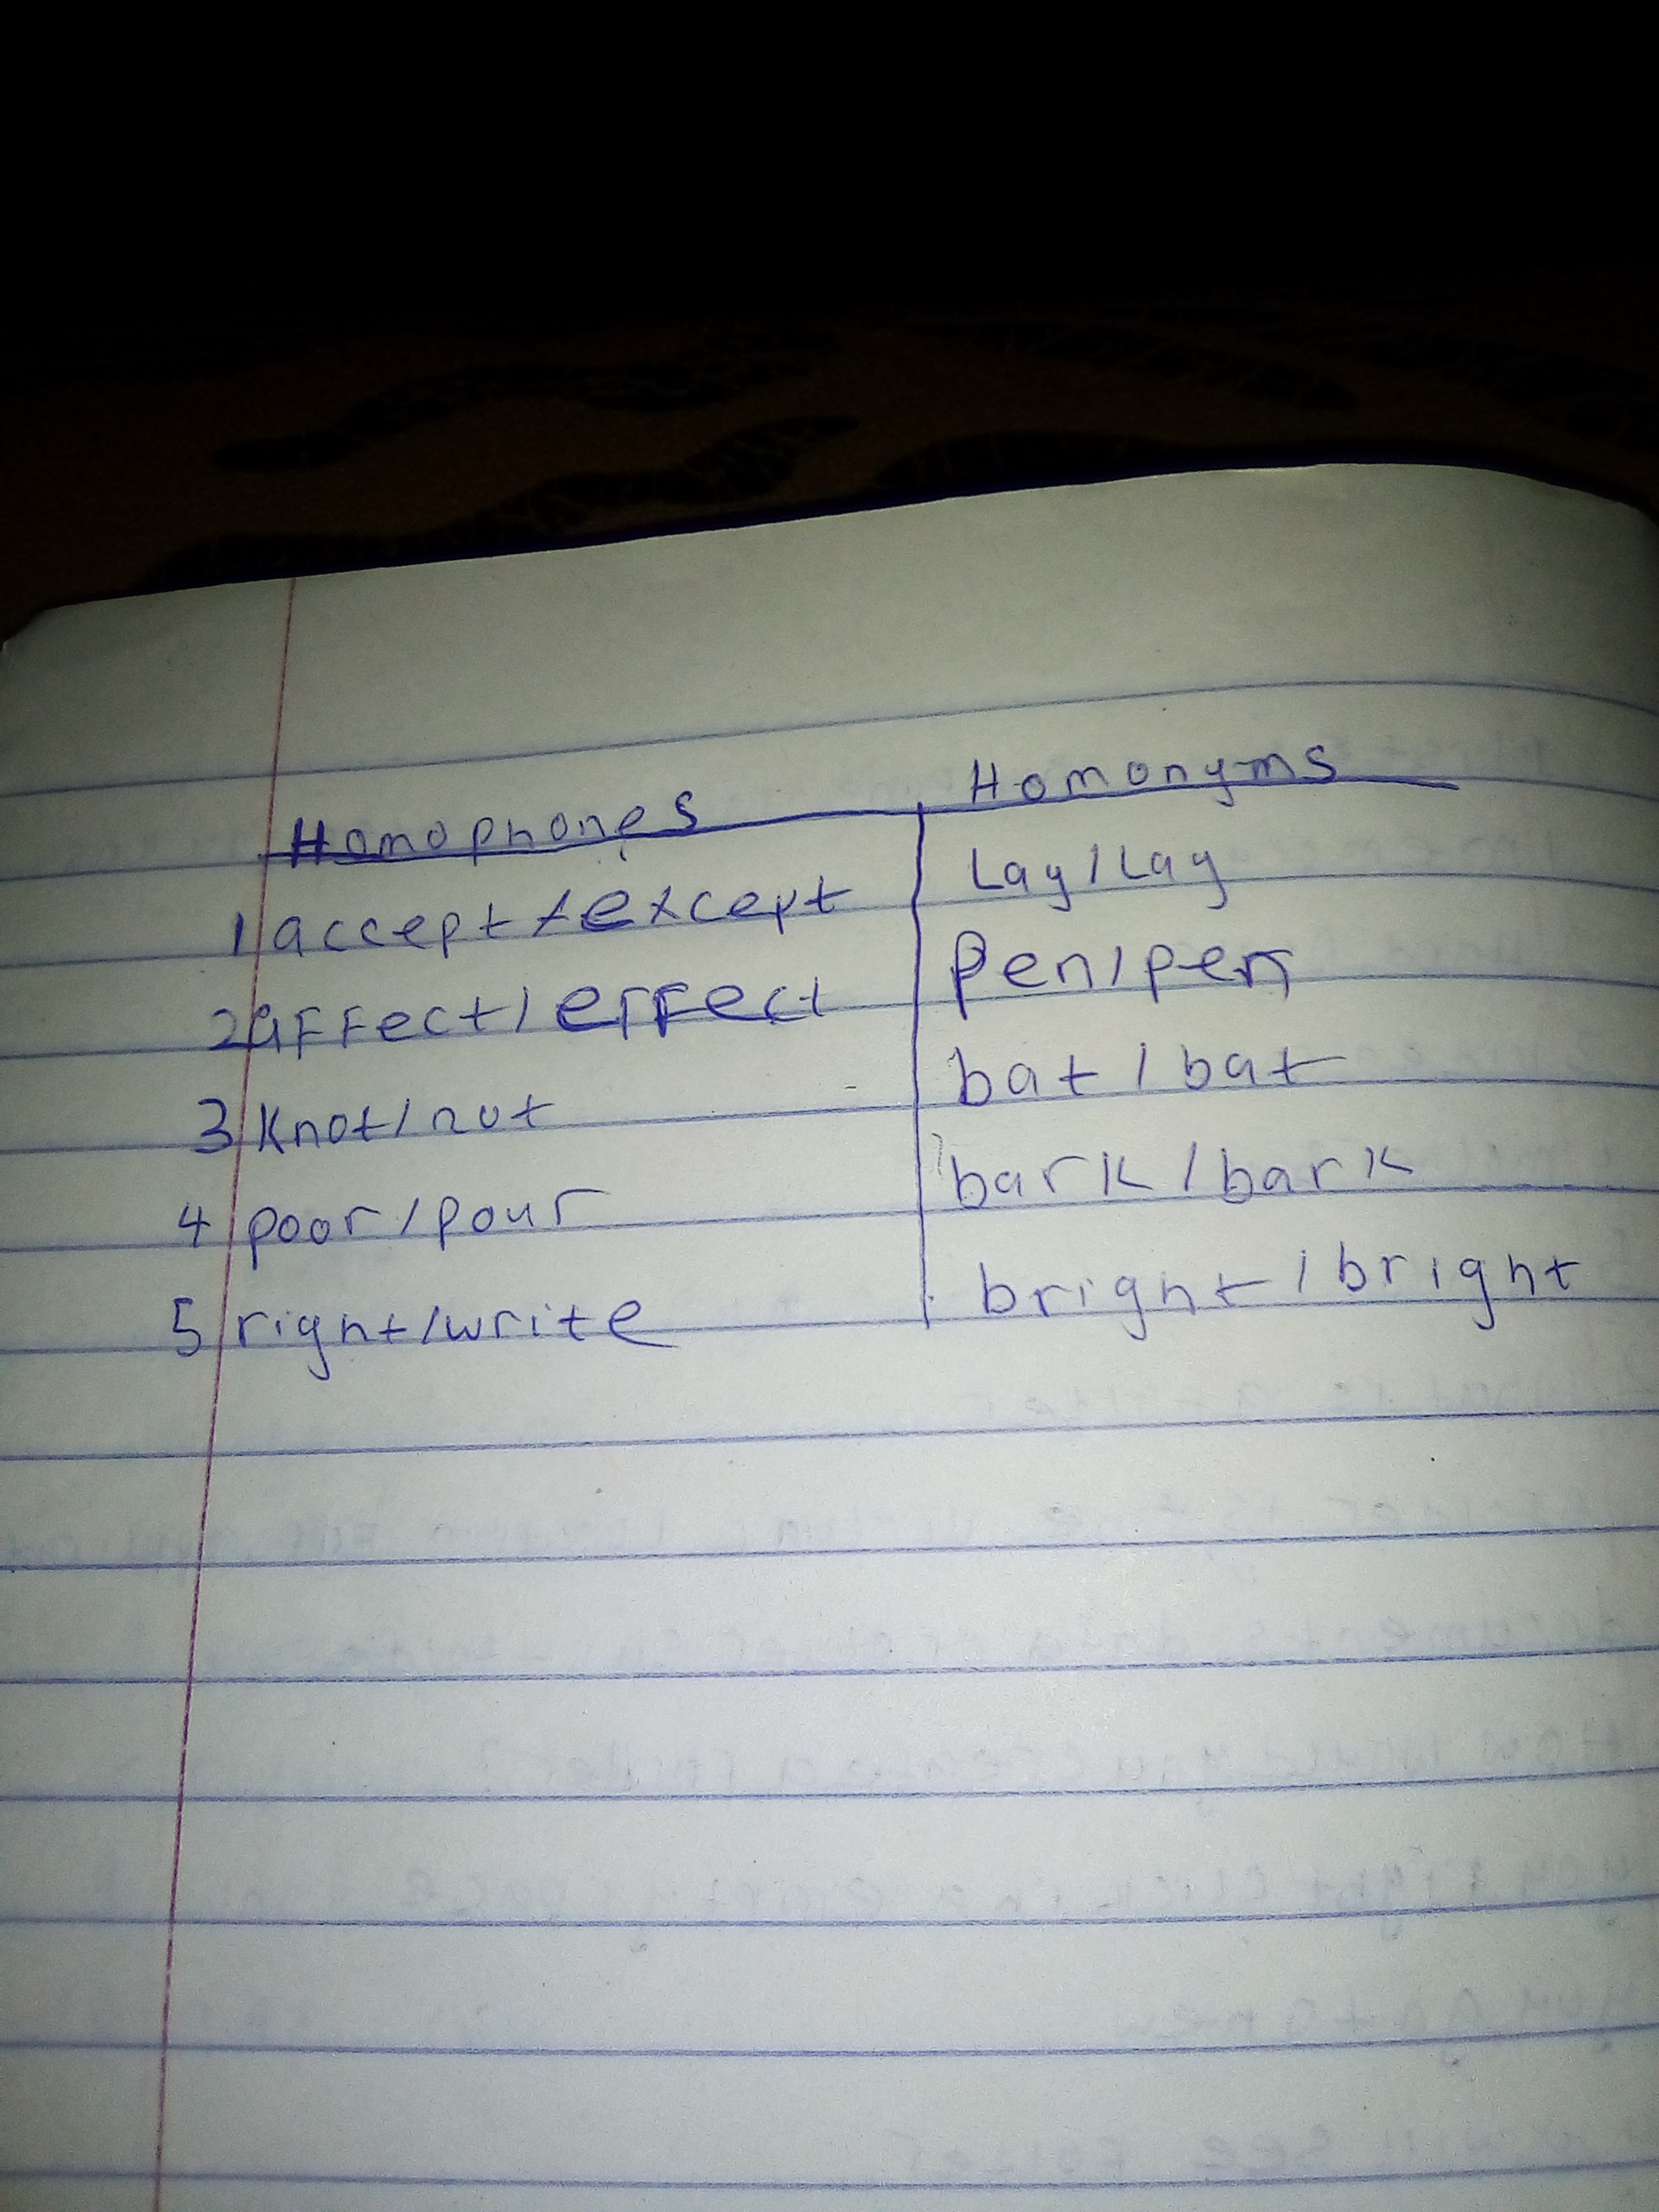 Homophones | Homonyms
1 accept/except | Lay/Lay
2 affect/effect | Pen/pen
3 Knot/not | bat/bat
4 poor/pour | bark/bark
5 right/write | bright/bright